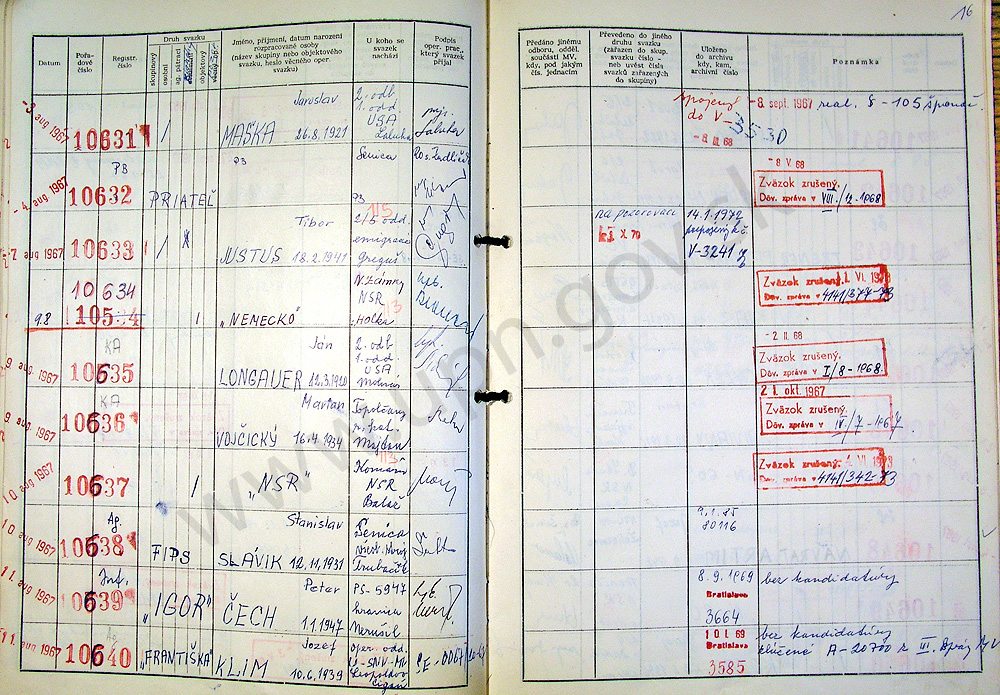 16
Datum
Pořa-
dové
číslo
Registr.
číslo
Druh svazku
skupinový
osobní
ag. pátrací
objektový
Jméno, příjmení, datum narození
rozpracované osoby
(název skupiny nebo objektového
svazku, heslo věcného oper.
svazku)
U koho se
svazek
nachází
Podpis
oper. prac.,
který svazek
přijal
Předáno jinému
odboru, odděl.
součásti MV.
kdy, pod jakým
čís. jednacím
Převedeno do jiného
druhu svazku
(zařazen do skup.
svazku číslo -
neb uvést čísla
svazků zařazených
do skupiny)
Uloženo
do archivu
kdy, kam,
archivní číslo
Poznámka
-3 aug 1967
10631
/
Jaroslav
MAŠKA 26.8.1921
2. odb.
1. odd
USA
spojený
do V-3530
-8. III. 68
-8. sept. 1967
-4. aug 1967
PB
10632
PRIATEĽ
PB
Senica
-8 V. 68
Zväzok zrušený.
Dôv. zpráva v VIII./12-1968
-7 aug 1967
10633
/
Tibor
JUSTUS 18.2.1941
2/5 odd.
emigrácie
Greguš
na pozorovací
X. 70
14.1.1972
V-3241
9.8
10634
1
„NEMECKO"
N. Zámky
NSR
Holka
Zväzok zrušený 1. VI. 1973
Dôv. zpráva v 4141/377-73
9 aug. 1967
KA
10635
Ján
LONGAUER 12.3.1920
2. odb
1. odd.
USA
-2 II. 68
Zväzok zrušený.
Dôv. zpráva v I/8-1968.
9 aug. 1967
KA
10636
Marian
VOJČICKÝ 16.4.1934
Topoľčany
Majdan
2 1. okt. 1967
Zväzok zrušený.
Dôv. zpráva v IV/7-1967.
10 aug 1967
10637
1
„NSR"
113
Komárno
NSR
Baláž
Zväzok zrušený. VI. 1973
Dôv. zpráva v 4141/342-73
10 aug 1967
Ag.
10638
FIPS
Stanislav
SLÁVIK 12.11.1931
Senica
9.1.85
80116
11. aug 1967
Inf.
10639
„IGOR"
Peter
ČECH 1.1.1947
PS-5947
hranica
8.9.1969
Bratislava
3664
bez kandidatúry
11. aug 1967
Ag
10640
„FRANTIŠKA"
Jozef
KLIM 10.6.1939
oper. odd.
Leopoldov
Cigan
10 I. 69
Bratislava
3585
bez kandidatúry
A-20700
www.upn.gov.sk